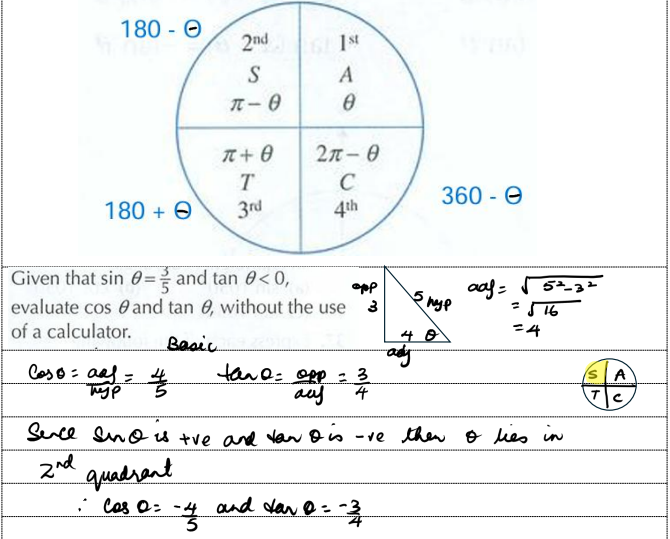 180 - Θ
2nd 1st
S A
π − θ θ
π + θ 2π − θ
T C
3rd 4th
180 + Θ
360 - Θ
Given that sin θ = 3/5 and tan θ < 0,
evaluate cos θ and tan θ, without the use
of a calculator.
opp
3
5 hyp
4 θ
adj
adj = √5²-3²
= √16
= 4
Basic
Cos θ = adj/hyp = 4/5 tan θ = opp/adj = 3/4
S A
T C
Since Sin θ is +ve and tan θ is -ve then θ lies in
2nd quadrant
∴ Cos θ = -4/5 and tan θ = -3/4